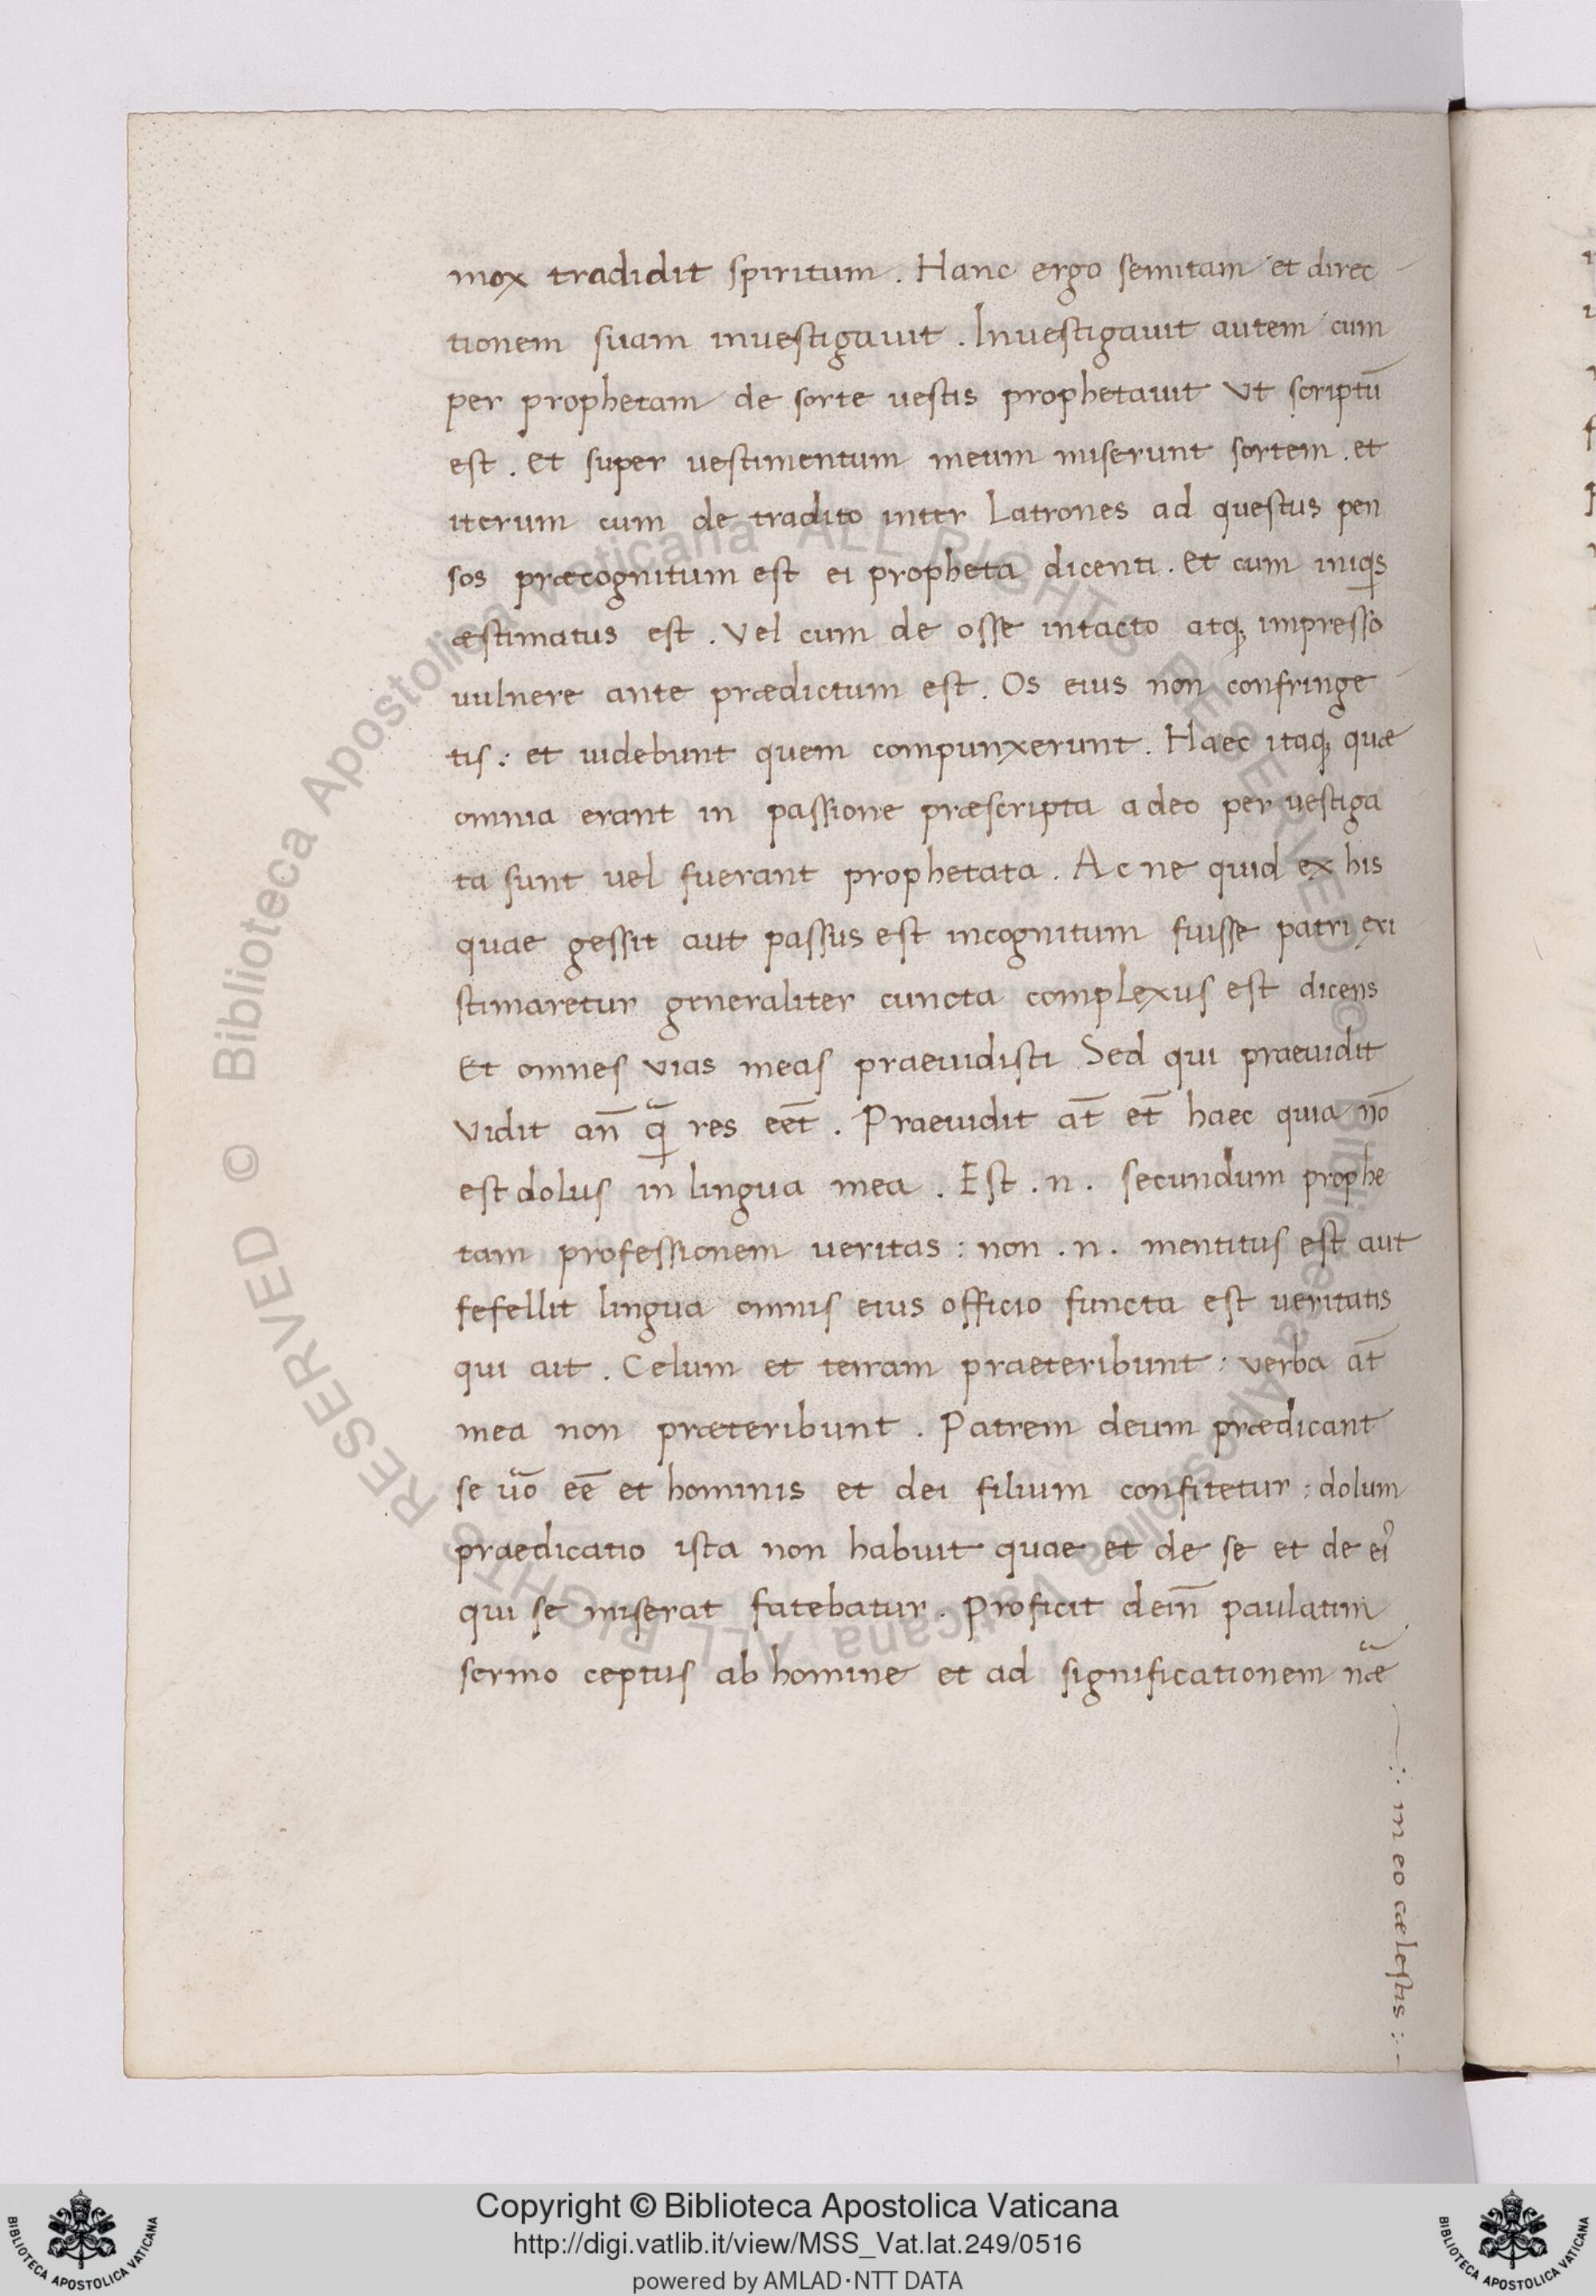 mox tradidit spiritum . Hanc ergo semitam et direc
tionem suam inuestigauit . Inuestigauit autem cum
per prophetam de sorte uestis prophetauit Vt scriptū
est . Et super uestimentum meum miserunt sortem . et
iterum cum de tradito inter Latrones ad questus pen
sos præcognitum est ei propheta dicenti . Et cum iniqs
æstimatus est . Vel cum de osse intacto atq; impresso
uulnere ante prædictum est . Os eius non confringe
tis : et uidebunt quem compunxerunt . Haec itaq; quæ
omnia erant in passione præscripta adeo peruestiga
ta sunt uel fuerant prophetata . Ac ne quid ex his
quae gessit aut passus est incognitum fuisse patri exi
stimaretur generaliter cuncta complexus est dicens
Et omnes vias meas praeuidisti Sed qui praeuidit
vidit an̄ q̄ res eēt . Praeuidit at̄ et̄ haec quia nō
est dolus in lingua mea . Est .n. secundum prophe
tam professionem ueritas : non .n. mentitus est aut
fefellit lingua omnis eius officio functa est ueritatis
qui ait . Celum et terram praeteribunt : verba at̄
mea non præteribunt . Patrem deum prædicant
se uō eē et hominis et dei filium confitetur : dolum
praedicatio ista non habuit quae et de se et de eí
qui se miserat fatebatur . Proficit dein̄ paulatim
sermo ceptus ab homine et ad significationem nāe
in eo cælestis
Copyright © Biblioteca Apostolica Vaticana
http://digi.vatlib.it/view/MSS_Vat.lat.249/0516
powered by AMLAD·NTT DATA
BIBLIOTECA APOSTOLICA VATICANA
BIBLIOTECA APOSTOLICA VATICANA
© Biblioteca Apostolica Vaticana ALL RIGHTS RESERVED © Biblioteca Apostolica Vaticana ALL RIGHTS RESERVED